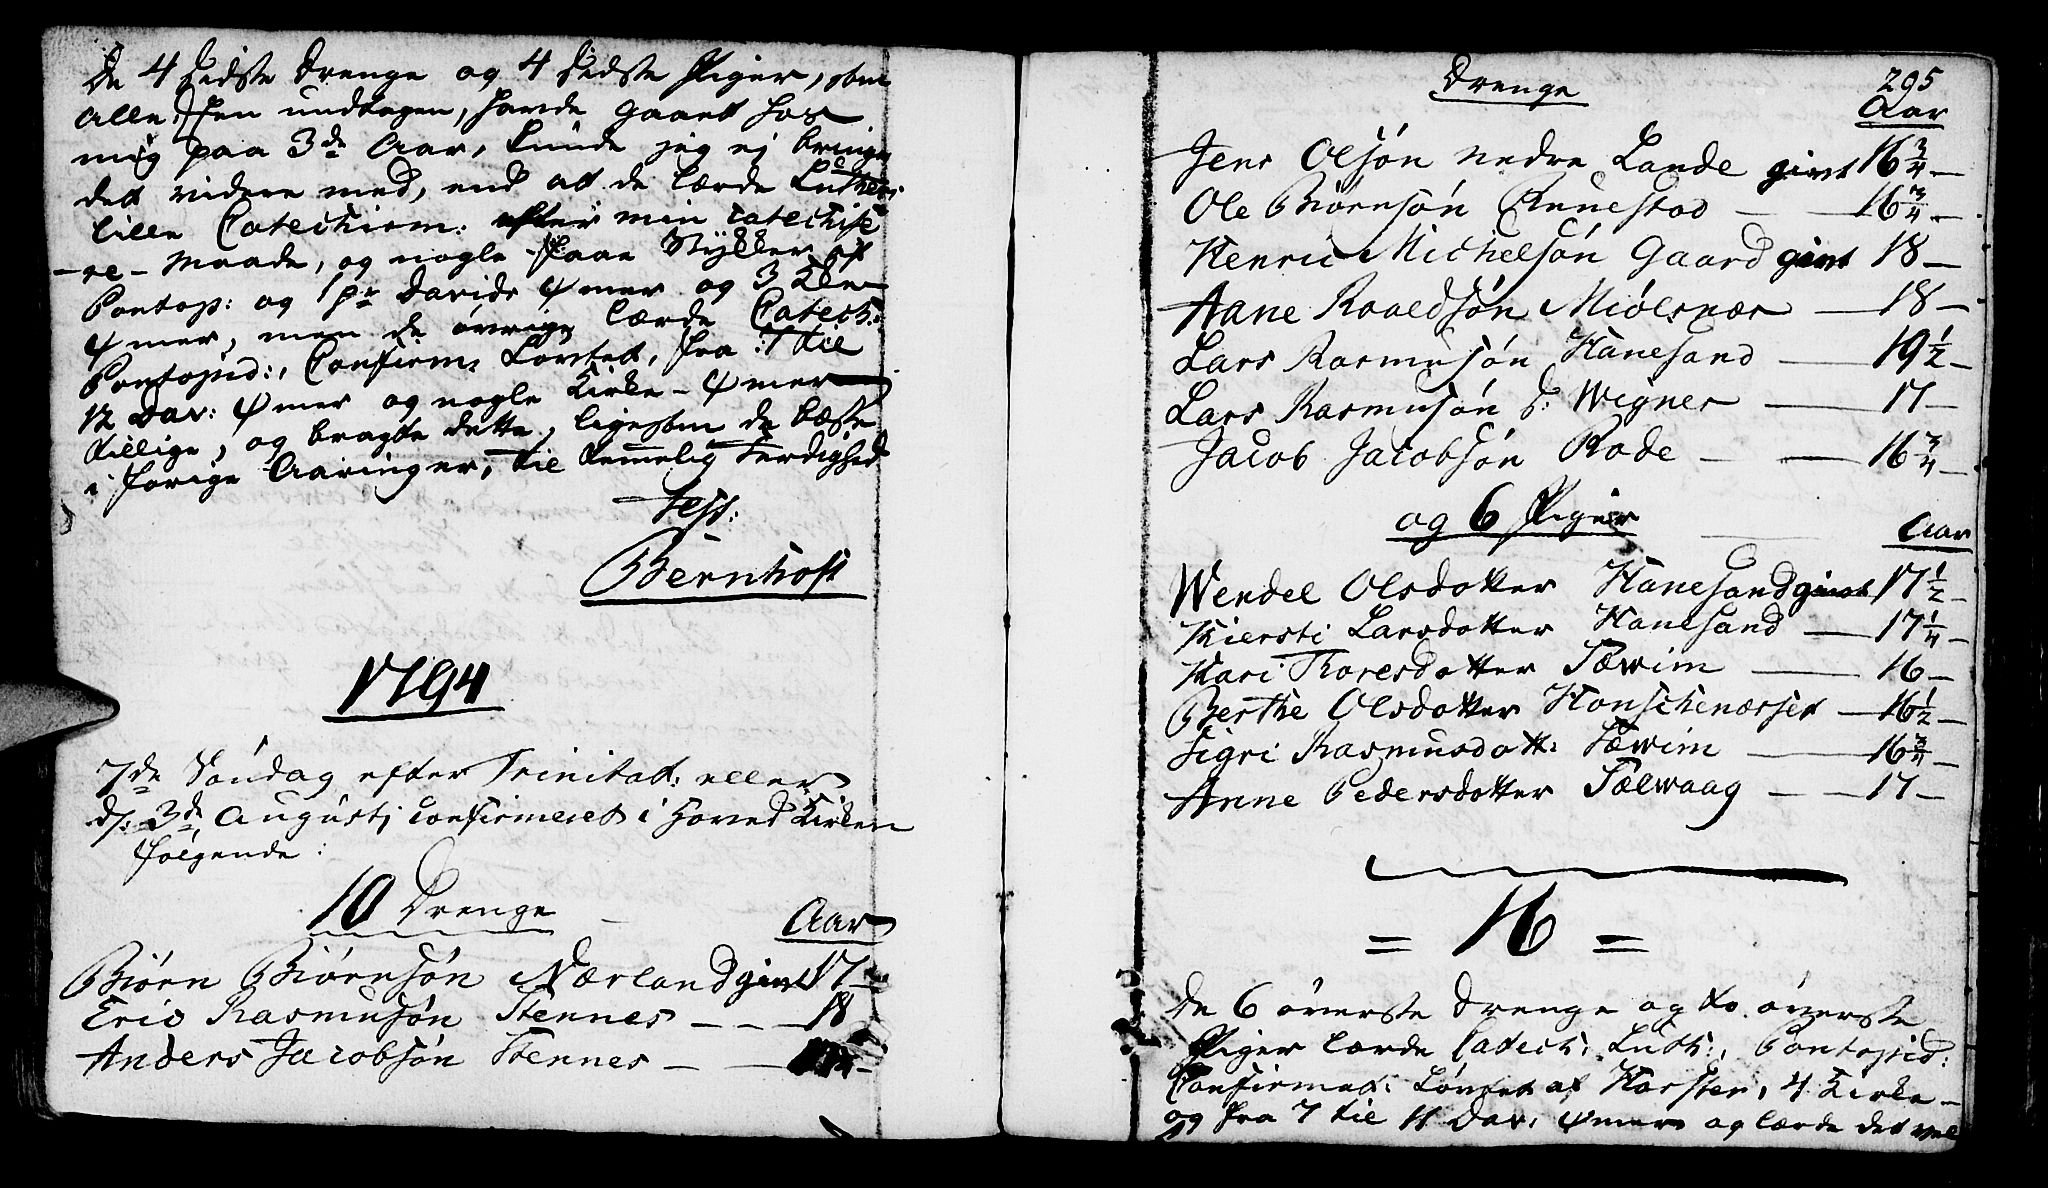 De 4 Sidste Drenge og 4 Sidste Piger, som
alle, Een undtagen, havde gaaet hos
mig paa 3de Aar, kunde jeg ej bringe
det videre med, end at de lærde Lutheri
lille Catechism: efter min Catechise
-re- Maade, og nogle faae Stykker af
Pontop: og 1 pr Davids ψmer og 3
ψmer, men de øvrige lærde Catech:
Pontopid:, Confirm: Løvtet, fra :7 til
12 Dav: ψmer og nogle Kirke-ψmer
tillige, og bragte dette, ligesom de bæste
i forige Aaringer, til temmelig Færdighed
Test:
Bernhoft
1794
7de Søndag efter Trinitat: eller
d/: 3de Augusti confirmeret i Hoved Kirken
følgende:
10 Drenge Aar
Biørn Biørnsøn Nærland givt 17 -
Eric Rasmusøn Stennes - - - 18
Anders Jacobsøn Stennes - -
295
Drenge Aar
Jens Olsøn nedre Lande givt 16 3/4 -
Ole Biørnsøn Runestad - - 16 3/4 -
Henric Michelsøn Gaard givt 18 -
Aane Roaldsøn Miølsnær - 18 -
Lars Rasmusøn Hanesand - 19 1/2 -
Lars Rasmusøn S: Wignes - 17 -
Jacob Jacobsøn Rode - - 16 3/4 -
og 6 Piger Aar
Wendel Olsdotter Hanesand givt 17 1/2 -
Kiersti Larsdotter Hanesand - 17 1/4 -
Kari Toresdotter Sæwim - 16 -
Berthe Olsdotter Honschenæsset - 16 1/2 -
Sigri Rasmusdott: Sæwim - 16 3/4 -
Anne Pedersdotter Sælwaag - - 17 -
= 16 =
De 6 øverste Drenge og to øverste
Piger lærde Catech: Luth:, Pontopid:
Confirmat: Løvtet af Horster, 4 Kirke-
og fra 7 til 11 Dav: ψmer og lærde det vel